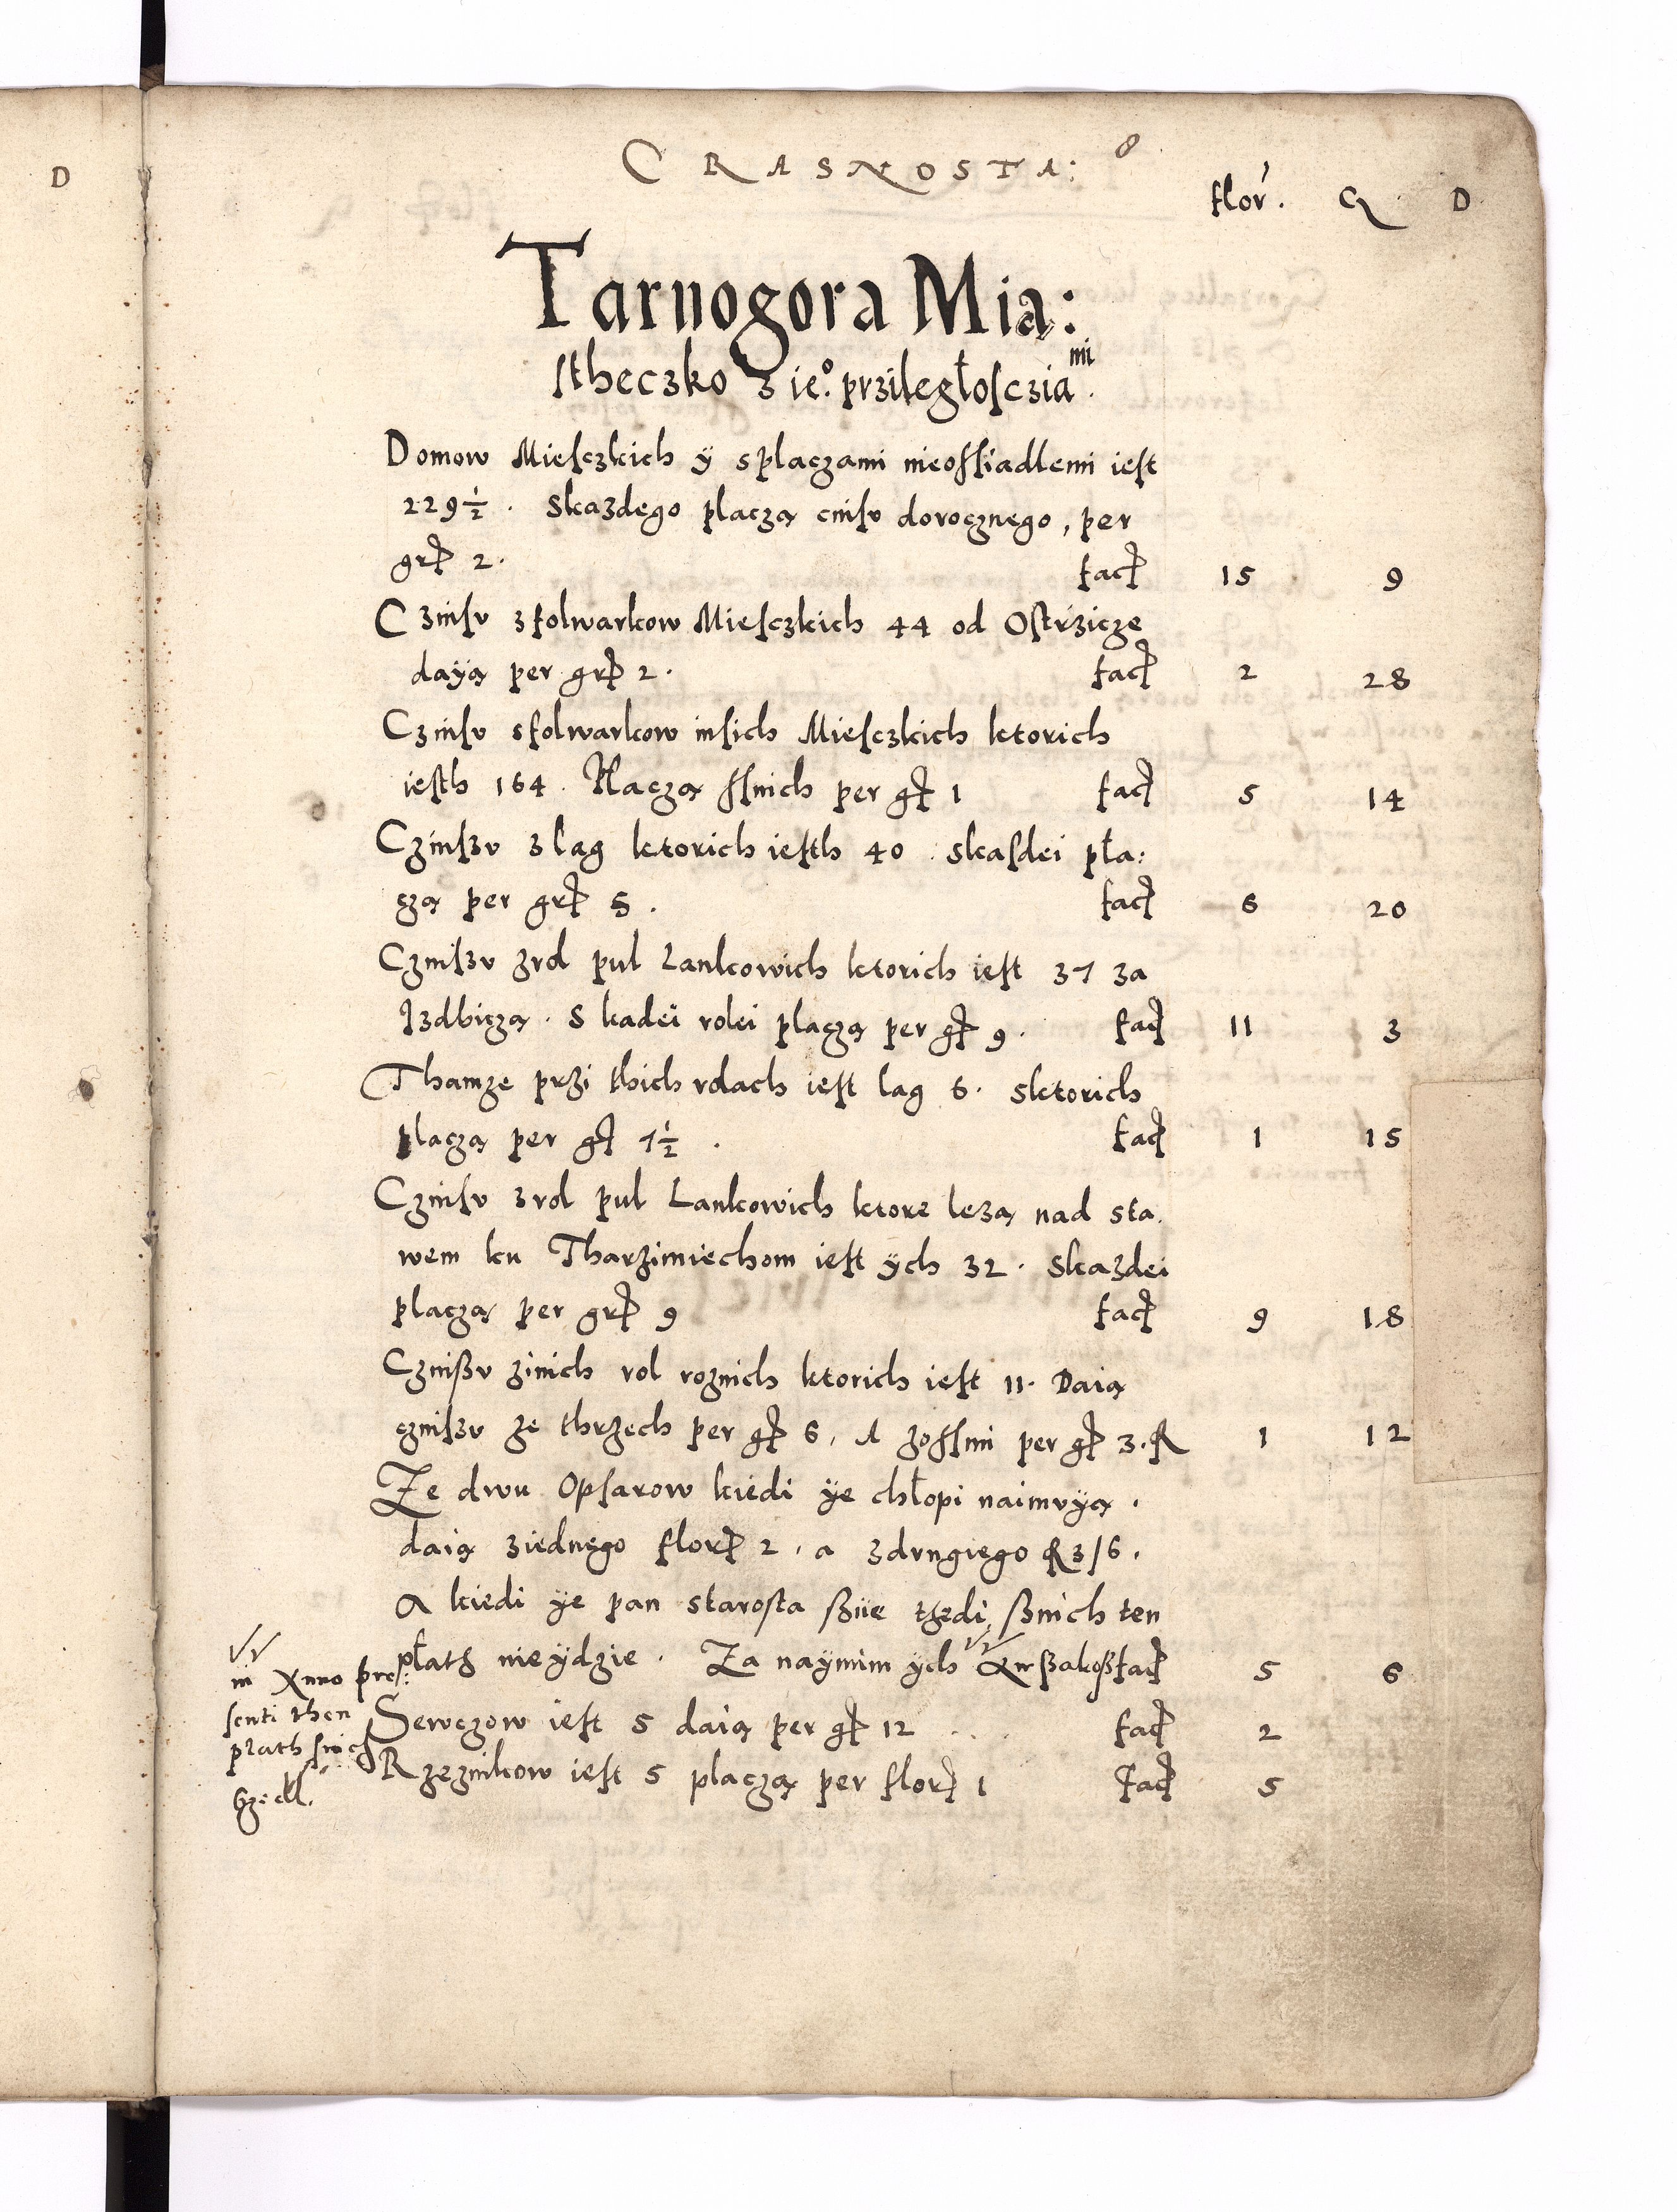 D
CRASNOSTA:
8
flor. G D
Tarnogora Mia:
stheczko z ieº. prziległosczia mi.
Domow Miesczkich ÿ s placzami nieossiadlemi iest
229½. Skazdego placzą cinsv dorocznego, per
gr 2. fac 15 9
Czinsv z folwarkow Miesczkich 44 od Ostrzicze
dayą per gr 2. fac 2 28
Czinsv s folwarkow insich Miesczkich ktorich
iesth 164. Placzą ssnich per g 1 fac 5 14
Czinszv z lag ktorich iesth 40. skasdei pła:
czą per gr 5. fac 6 20
Czinszv z rol pul Lankowich ktorich iest 37 za
Izdbiczą. S kadei rolei placzą per g 9. fac 11 3
Thamze przi thich rolach iest lag 6. sktorich
placzą per g 7½. fac 1 15
Czinsv z rol pul Lankowich ktore lezą nad sta.
wem ku Tharzimiechom iest ÿch 32. Skazdei
placzą per gr 9 fac 9 18
Czinszv z inich rol roznich ktorich iest 11. Daią
czinszv ze thrzech per g 6, A z ossmi per g 3. 1 12
Ze dwu Opsarow kiedi ÿe chłopi naimvÿą.
daią z iednego flor 2, a z drugiego 3/6.
A kiedi ÿe pan starosta sziie thedi sznich ten
płath nie ÿdzie. Za naymim ÿch fac 5 6
in Anno pre
senti then
plath snich
Sewczow iest 5 daią per g 12 fac 2
Rzeznikow iest 5 placzą per flor 1 fac 5